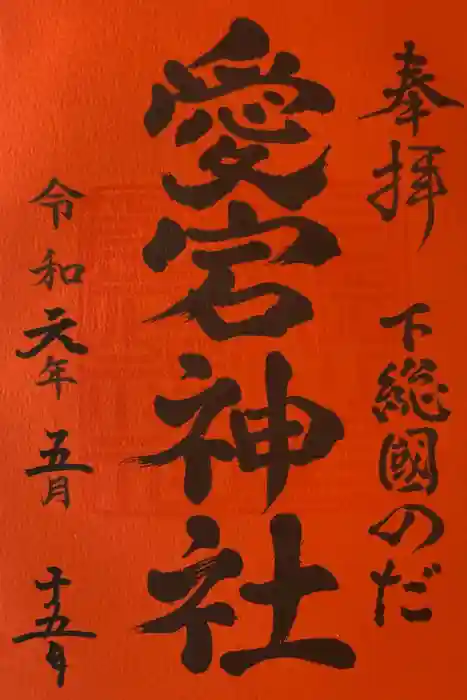 奉拝 下総國のだ
愛宕神社
令和元年 五月 十五日